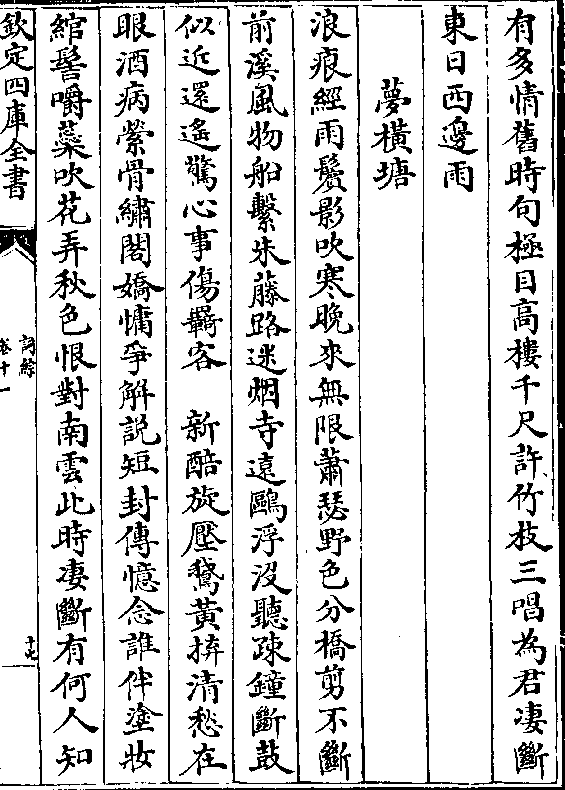 有多情舊時句極目高樓千尺許竹枝三唱為君凄斷
東日西邊雨
夢橫塘
浪痕經雨鬢影吹寒晚來無限蕭瑟野色分橋剪不斷
前溪風物船繫朱藤路迷烟寺遠鷗浮没聽疎鐘斷鼓
似近還遙驚心事傷羈客　新醅旋壓鵞黄拚清愁在
眼酒病縈骨繡閣嬌慵爭解說短封傳憶念誰伴塗妝
綰髻嚼蘂吹花弄秋色恨對南雲此時凄斷有何人知
欽定四庫全書
詞綜
卷十一
十七